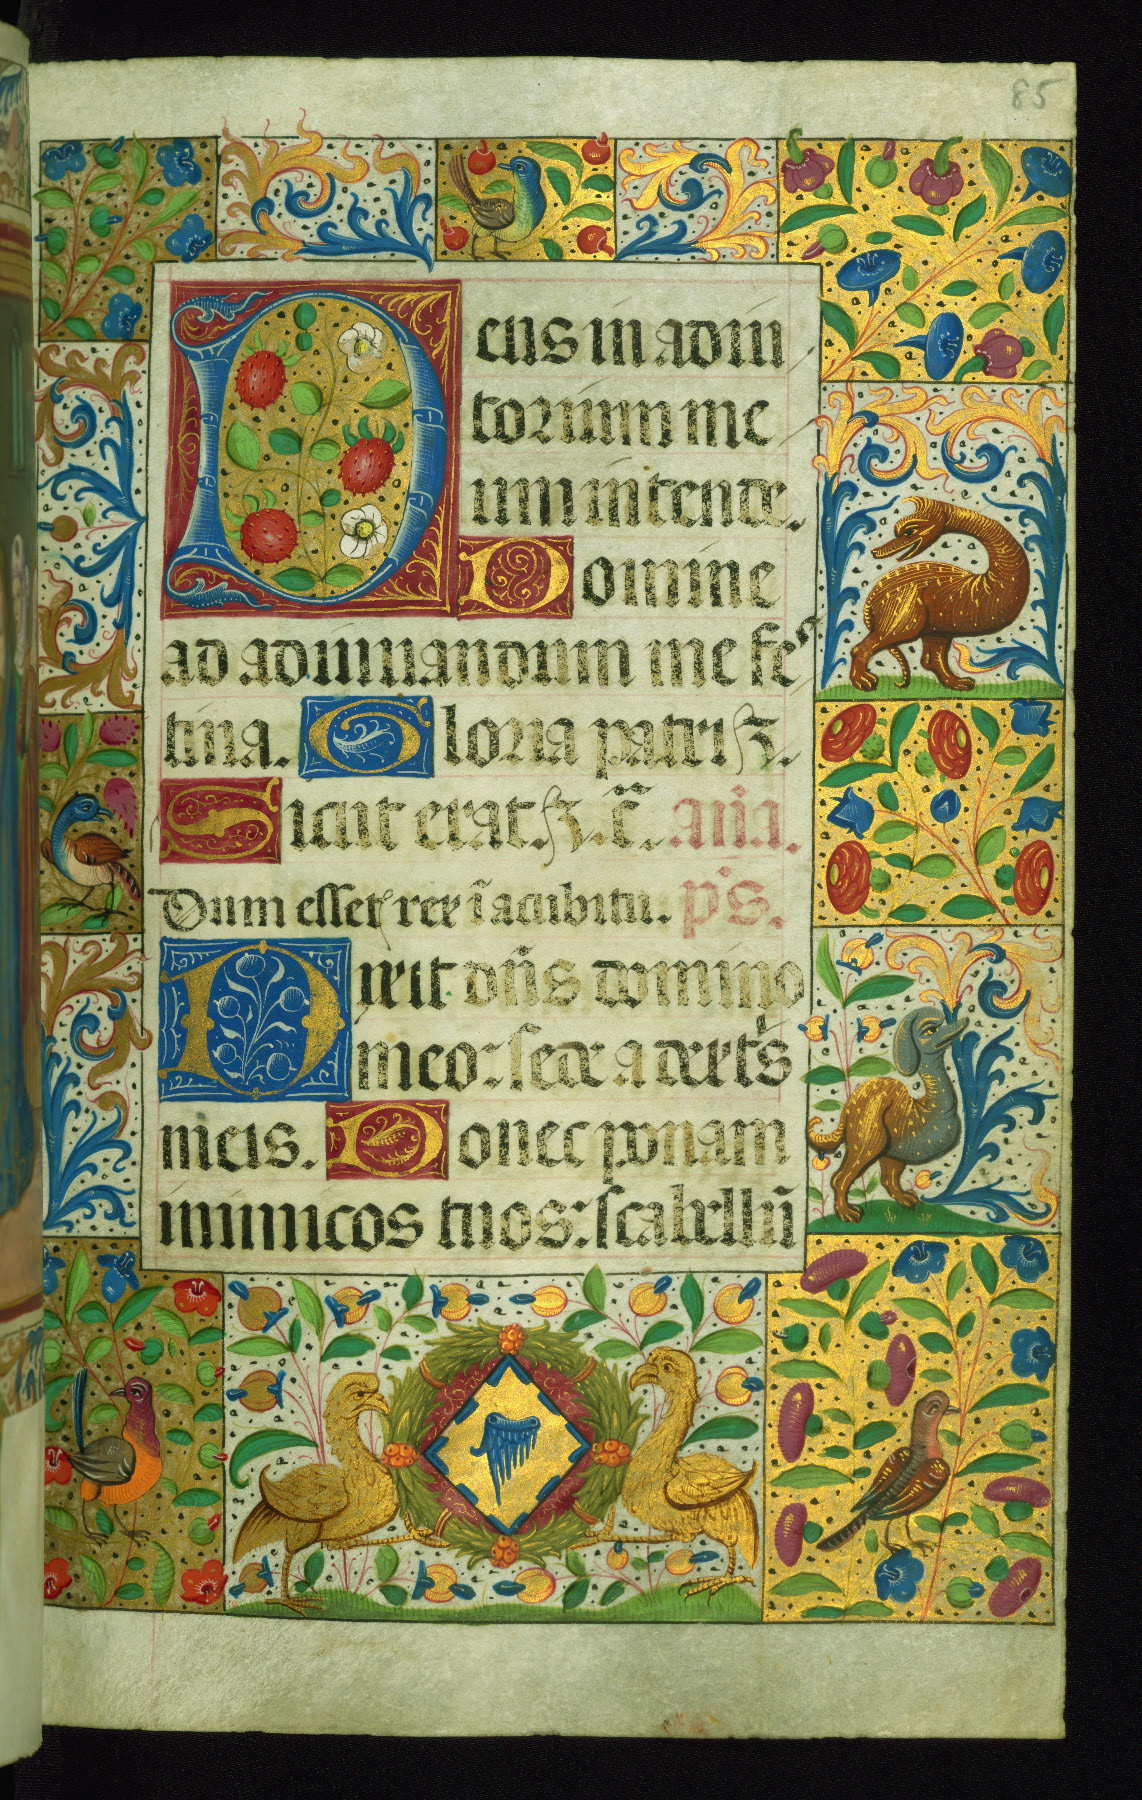 85
Deus in adiu
torium me
um intende.
Domine
ad adiuuandum me fes
tina. Gloria patri ꝫ.
Sicut erat. ꝫ.c̃. an̄a.
Dum esset rex ī acubitu. p̄s.
Dixit dn̄s domino
meo: sede a dextˢ
meis. Donec ponam
inimicos tuos: scabellū